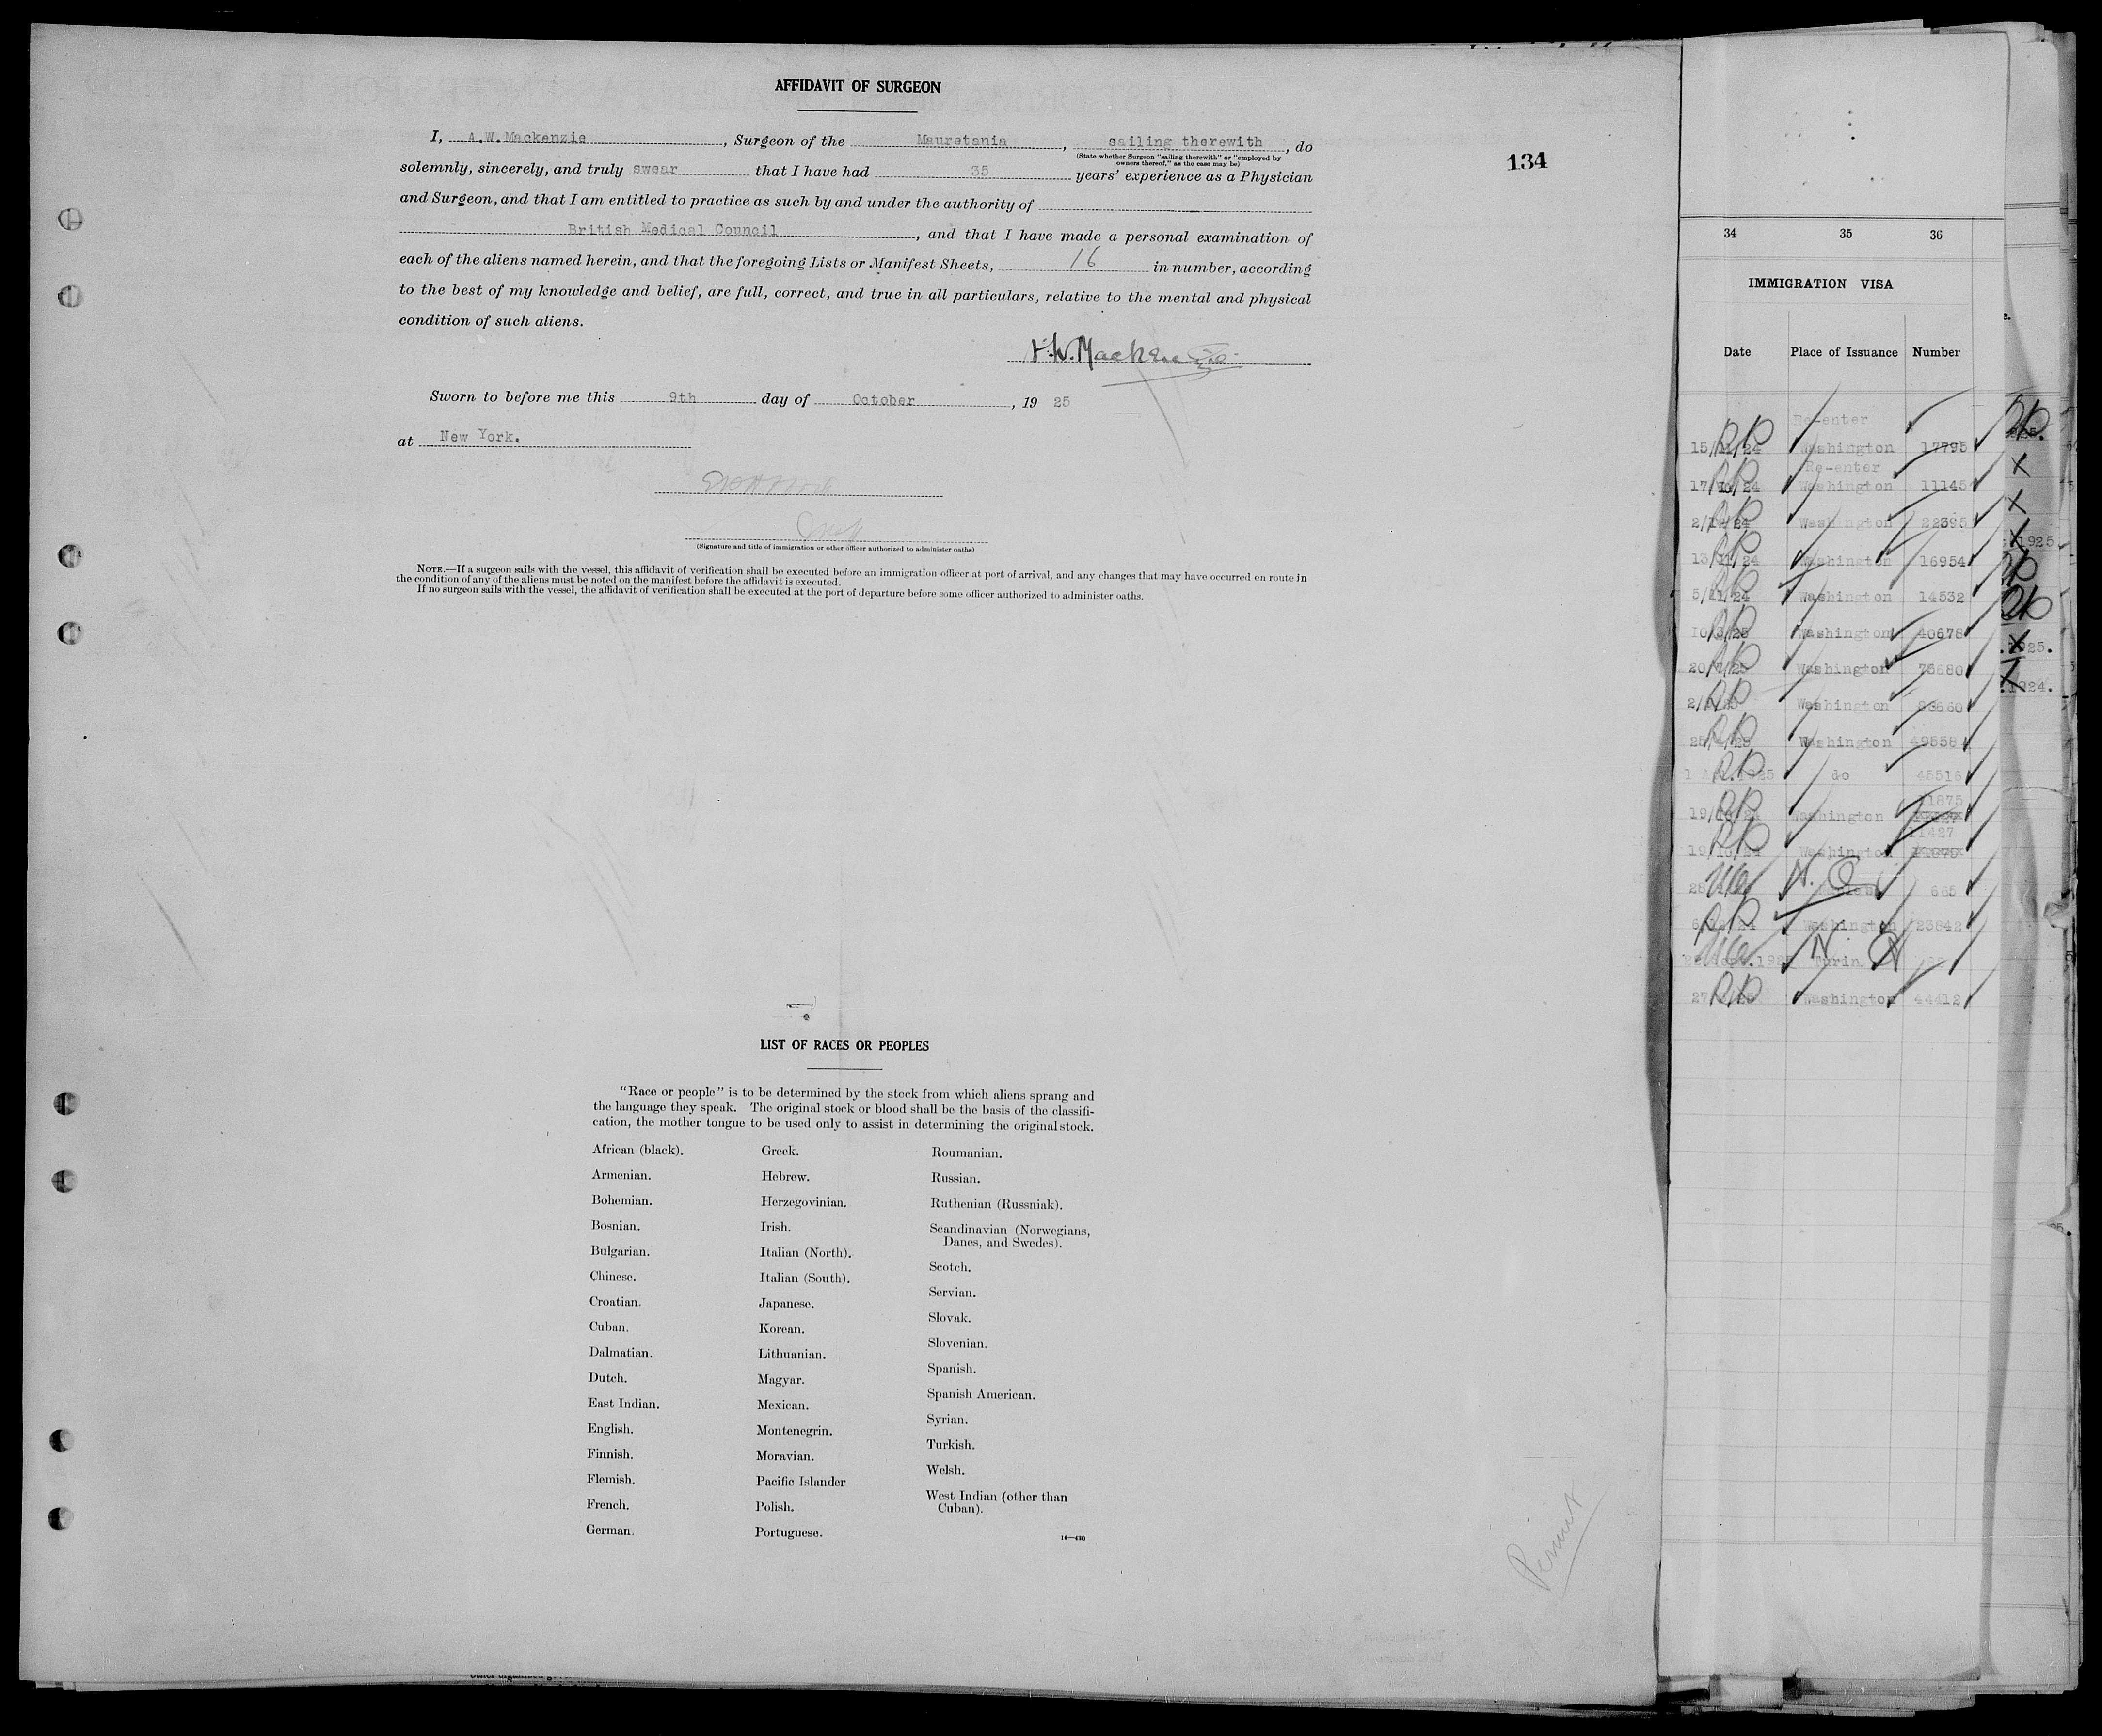 AFFIDAVIT OF SURGEON
I, A.W.Mackenzie, Surgeon of the Mauretania, sailing therewith, do
(State whether Surgeon "sailing therewith" or "employed by
owners thereof," as the case may be)
134
solemnly, sincerely, and truly swear that I have had 35 years' experience as a Physician
and Surgeon, and that I am entitled to practice as such by and under the authority of
British Medical Council, and that I have made a personal examination of
each of the aliens named herein, and that the foregoing Lists or Manifest Sheets, 16 in number, according
to the best of my knowledge and belief, are full, correct, and true in all particulars, relative to the mental and physical
condition of such aliens.
A.W. Mackenzie
Sworn to before me this 9th day of October, 19 25
at New York.
(Signature and title of immigration or other officer authorized to administer oaths)
NOTE.—If a surgeon sails with the vessel, this affidavit of verification shall be executed before an immigration officer at port of arrival, and any changes that may have occurred en route in
the condition of any of the aliens must be noted on the manifest before the affidavit is executed.
If no surgeon sails with the vessel, the affidavit of verification shall be executed at the port of departure before some officer authorized to administer oaths.
LIST OF RACES OR PEOPLES
"Race or people" is to be determined by the stock from which aliens sprang and
the language they speak. The original stock or blood shall be the basis of the classifi-
cation, the mother tongue to be used only to assist in determining the original stock.
African (black).
Armenian.
Bohemian.
Bosnian.
Bulgarian.
Chinese.
Croatian.
Cuban.
Dalmatian.
Dutch.
East Indian.
English.
Finnish.
Flemish.
French.
German.
Greek.
Hebrew.
Herzegovinian.
Irish.
Italian (North).
Italian (South).
Japanese.
Korean.
Lithuanian.
Magyar.
Mexican.
Montenegrin.
Moravian.
Pacific Islander
Polish.
Portuguese.
Roumanian.
Russian.
Ruthenian (Russniak).
Scandinavian (Norwegians,
Danes, and Swedes).
Scotch.
Servian.
Slovak.
Slovenian.
Spanish.
Spanish American.
Syrian.
Turkish.
Welsh.
West Indian (other than
Cuban).
14—430
Permit
34 35 36
IMMIGRATION VISA
Date Place of Issuance Number
Re-enter
Washington 17795
Re-enter
Washington 11145
Washington 22395
Washington 16954
Washington 14532
Washington 40678
Washington 76680
Washington
Washington 49558
do 45516
11875
Washington
11427
Washington
N. Q 665
Washington 23842
Turin N. Q
Washington 44412